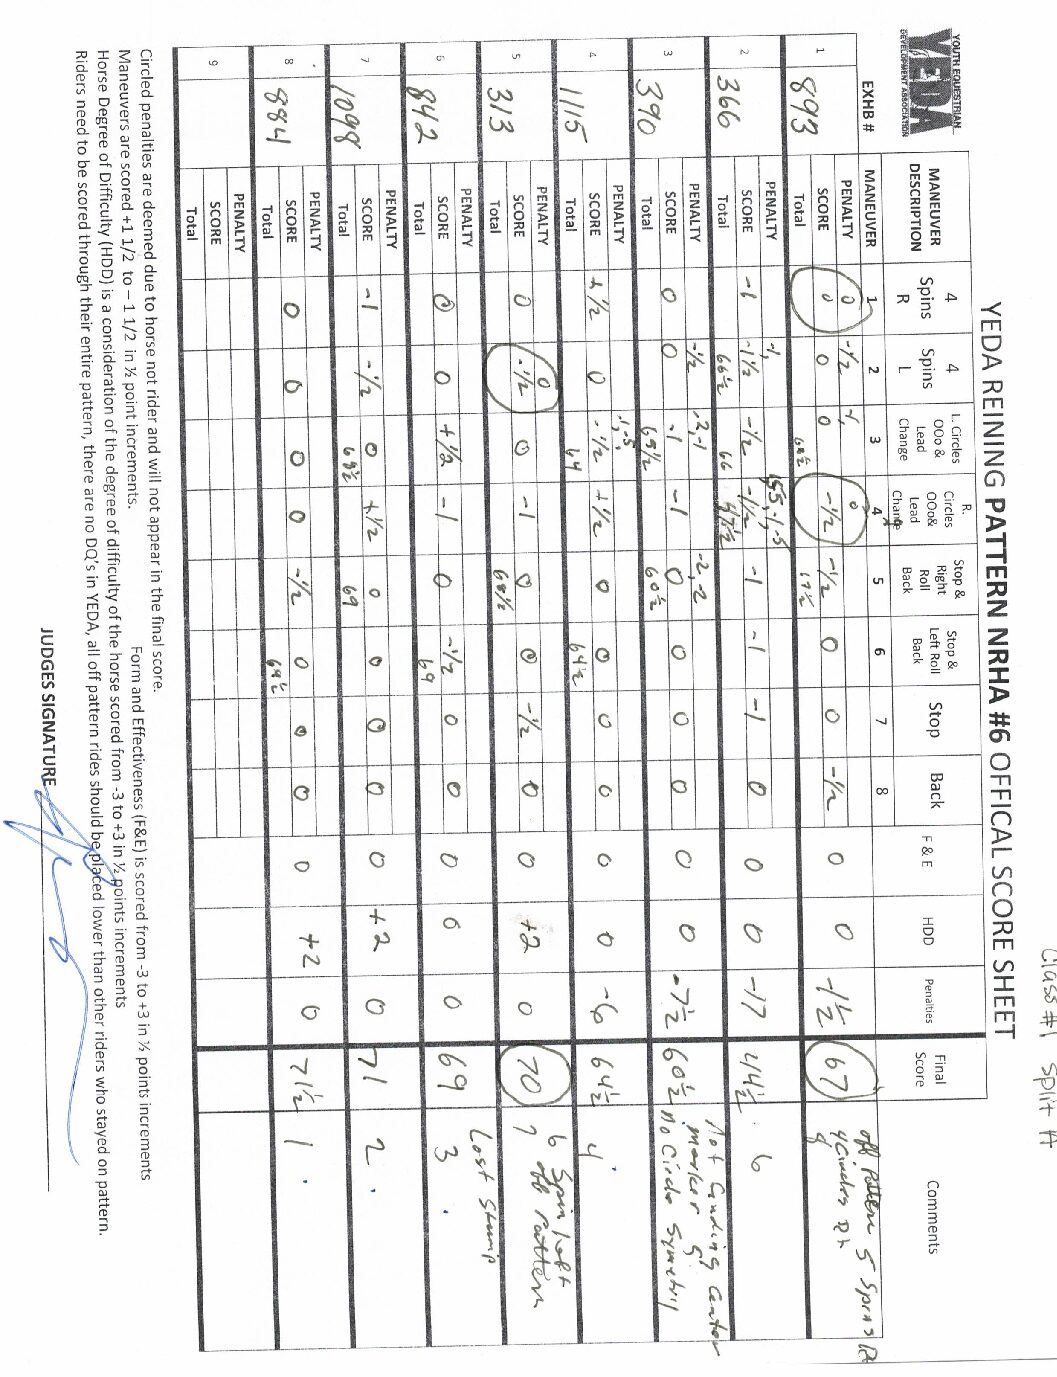 Class #1 Split A
YEDA REINING PATTERN NRHA #6 OFFICAL SCORE SHEET
YOUTH EQUESTRIAN
YEDA
DEVELOPMENT ASSOCIATION
MANEUVER DESCRIPTION 4 Spins R 4 Spins L L. Circles OOo & Lead Change R. Circles OOo& Lead Change Stop & Right Roll Back Stop & Left Roll Back Stop Back F & E HDD Penalties Final Score Comments
EXHB # MANEUVER 1 2 3 4 5 6 7 8
1 893 PENALTY 0 -1/2 -1, 0 -1/2 0 0 -1/2 0 0 -1 1/2 67 off pattern 5 Spins Rt
SCORE 0 0 0 -1/2 4 Circles Rt
Total 68 1/2 67 1/2 8
2 366 PENALTY -1, -1, -.5
SCORE -1 -1 1/2 -1/2 -1 1/2 -1 -1 -1 0 0 0 -17 44 1/2 6
Total 66 1/2 66 47 1/2
3 390 PENALTY -1/2 -2,-1 -2,-2 Not finding Center marker
SCORE 0 0 -1 -1 0 0 0 0 0 0 -7 1/2 60 1/2 5
Total 63 1/2 60 1/2 No Circle Symetry
4 1115 PENALTY -1,-5
SCORE +1/2 0 -1/2 +1/2 0 0 0 0 0 0 -6 64 1/2 4
Total 64 64 1/2
5 313 PENALTY 0 6 Spin left
SCORE 0 -1/2 0 -1 0 0 -1/2 0 0 +2 0 70 off Pattern
Total 68 1/2 7
6 842 PENALTY Lost Stirrip
SCORE 0 0 +1/2 -1 0 -1/2 0 0 0 0 0 69 3
Total 69
7 1098 PENALTY
SCORE -1 -1/2 0 +1/2 0 0 0 0 0 +2 0 71 2
Total 68 1/2 69
8 884 PENALTY
SCORE 0 0 0 0 -1/2 0 0 0 0 +2 0 71 1/2 1
Total 69 1/2
9 PENALTY
SCORE
Total
Circled penalties are deemed due to horse not rider and will not appear in the final score.
Maneuvers are scored +1 1/2 to – 1 1/2 in ½ point increments. Form and Effectiveness (F&E) is scored from -3 to +3 in ½ points increments
Horse Degree of Difficulty (HDD) is a consideration of the degree of difficulty of the horse scored from -3 to +3 in ½ points increments
Riders need to be scored through their entire pattern, there are no DQ's in YEDA, all off pattern rides should be placed lower than other riders who stayed on pattern.
JUDGES SIGNATURE